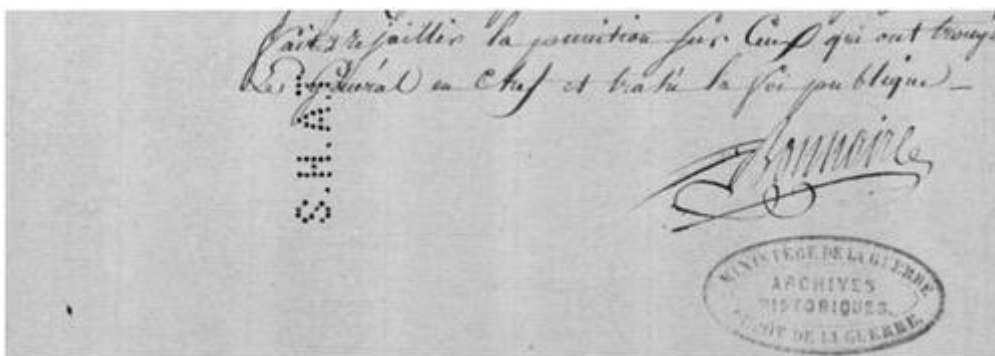 faites rejaillir la punition sur Ceux qui ont trompé
Le Général en Chef et trahi la foi publique —
Bonnaire
S.H.A.T.
MINISTÈRE DE LA GUERRE
ARCHIVES
HISTORIQUES.
DÉPÔT DE LA GUERRE